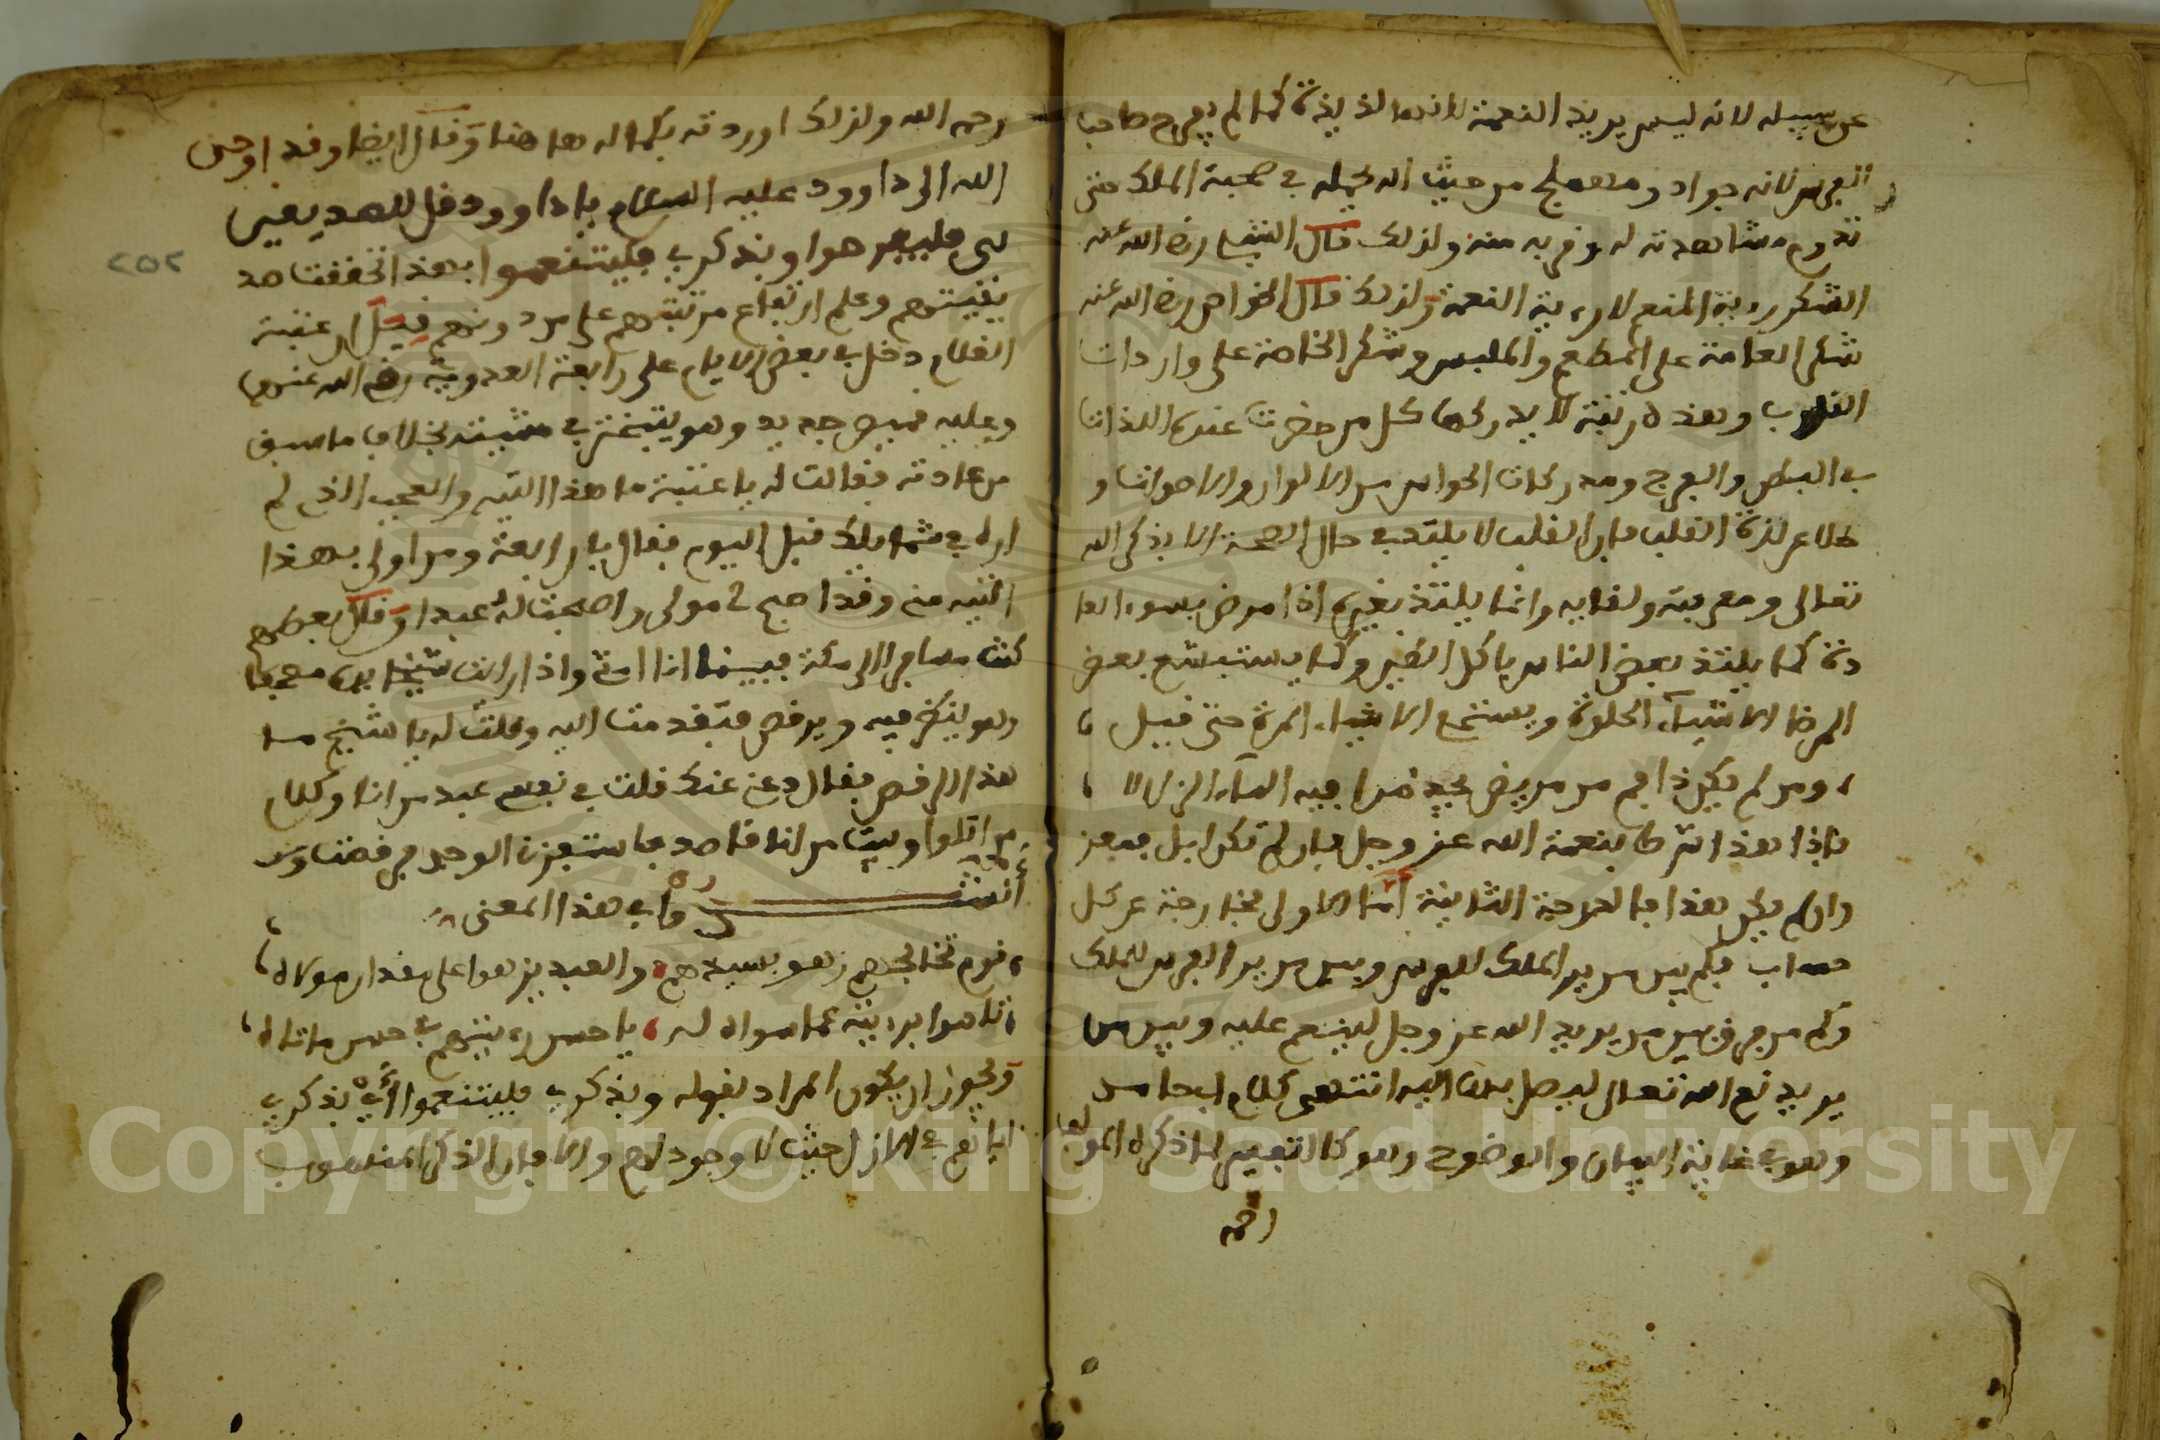 عن سبيله لانه ليس يريد النعمة لانها لذيذة كما لم يفرح صاحب
الفرس لانه جواد ومهملج من حيث انه يحمله في صحبة الملك حتى
تدوم مشاهدته له وقربه منه ولذلك قال الشبلي رضي الله عنه
الشكر رءية المنعم لا رءية النعمة ولذلك قال الخواص رضي الله عنه
شكر العامة على المطعم والملبس وشكر الخاصة على واردات
القلوب وهذه رتبة لا يدركها كل من حضرت عنده اللذات
في البطن والفرج ومدركات الحواس من الالوان والاصوات و
خلا عن لذة القلب فان القلب لا يلتذ في حال الصحة الا بذكر الله
تعالى ومعرفته ولقايه وانما يلتذ بغيره اذا مرض بسوء العا
دة كما يلتذ بعض الناس باكل الطين وكما يستبشع بعض
المرضا الاشياء الحلوة ويستحلى الاشياء المرة حتى قيل
ومن يكن ذا فم مر مريض يجد مرا به الماء الزلالا
فاذا هذا شرط بنعمة الله عز وجل فان لم تكن ابل فمعز
وان لم يكن هذا فالدرجة الثانية اما الاولى فخارجة عن كل
حساب فكم بين من يريد الملك للفرس وبين من يريد الفرس للملك
وكم من فرق بين من يريد الله عز وجل لينعم عليه وبين من
يريد نعم الله تعالى ليصل بها اليه انتهى كلام ابي حامد
وهو في غاية البيان والوضوح وهو كالتفسير لما ذكره المولف
رحمه
رحمه الله ولذلك اوردته بكماله ها هنا وقال ايضا وقد اوحى
الله الى داوود عليه السلام يا داوود قل للصديقين
بي فليفرحوا وبذكري فليتنعموا بهذا تحققت صد
يقيتهم وعلم ارتفاع مرتبتهم على من دونهم فيحكى ان عتبة
الغلام دخل في بعض الايام على رابعة العدوية رضي الله عنهما
وعليه قميص جديد وهو يتبختر في مشيته بخلاف ما سبق
من عادته فقالت له يا عتبة ما هذا التيه والعجب الذي لم
اره في شمايلك قبل اليوم فقال يا رابعة ومن اولى بهذا
التيه مني وقد اصبح لي مولى واصبحت له عبدا وقال بعضهم
كنت مسافرا الى مكة فبينما انا امشي واذا رايت شيخا بيده مصحفا
وهو ينظر فيه ويرقص فتقدمت اليه وقلت له يا شيخ ما
هذا الرقص فقال دعني عنك قلت في نفسي عبد من انا وكلام
من اتلوا وبيت من انا قاصد فاستفزني الوجد فرقصت وقد
انشد وا في هذا المعنى
قوم تخالجهم زهو بسيدهم والعبد يزهوا على مقدار مولاه
تاهوا برءيته عما سواه له يا حسن رءيتهم في حسن ما تاه
ويجوز ان يكون المراد بقوله وبذكري فليتنعموا اي بذكري
اياهم في الازل حيث لا وجود لهم والا فان الذكر المنسوب
٢٥٢
Copyright © King Saud University